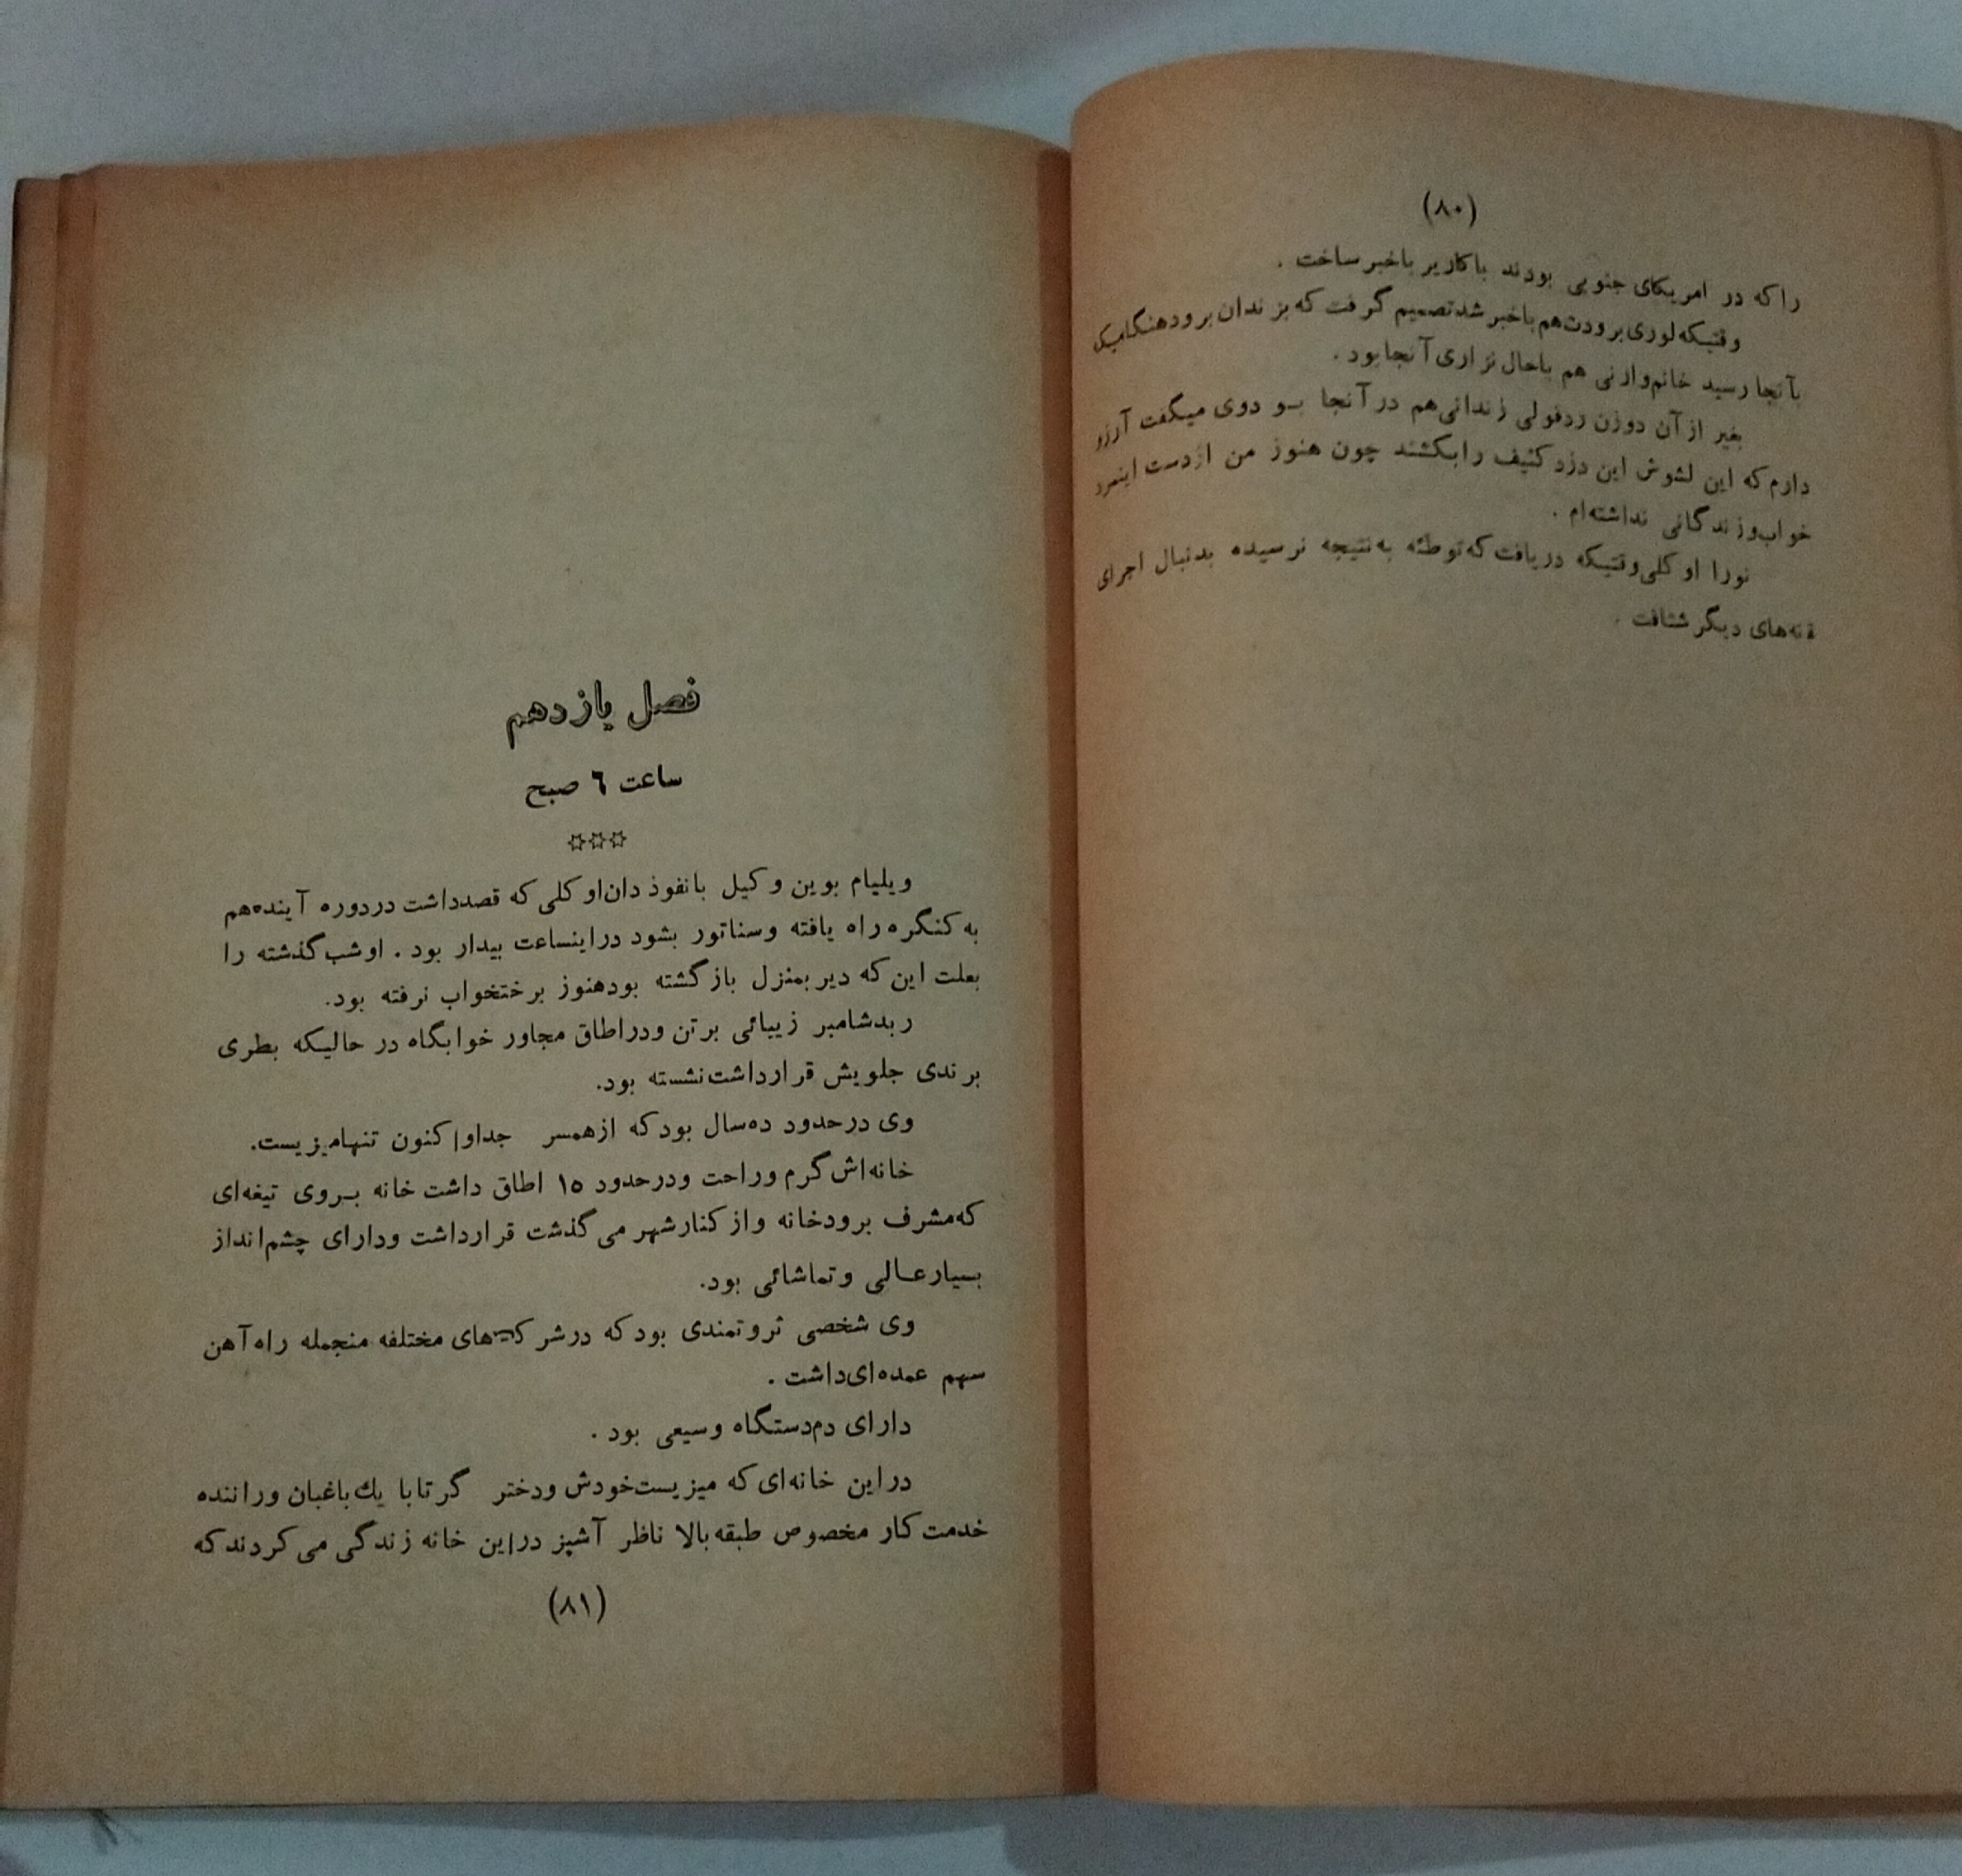 (۸۰)
را که در امریکای جنوبی بودند با کاریر باخبر ساخت .
وقتیکه لوری برودت هم باخبر شد تصمیم گرفت که بزندان برود هنگامیک
بآنجا رسید خانم وارنی هم باحال نزاری آنجا بود .
بغیر از آن دوزن ردفولی زندانی هم در آنجا بـو دوی میگفت آرزو
دارم که این لشوش این دزد کثیف را بکشند چون هنوز من از دست اینمرد
خواب وزندگانی نداشته ام .
نورا او کلی وقتیکه دریافت که توطئه به نتیجه نرسیده بدنبال اجرای
های دیگر شتافت .
فصل یازدهم
ساعت ٦ صبح
☆☆☆
ویلیام بوین وکیل بانفوذ دان او کلی که قصدداشت دردوره آینده هم
به کنگره راه یافته وسناتور بشود دراینساعت بیدار بود . اوشب گذشته را
بعلت این که دیر بمنزل بازگشته بودهنوز برختخواب نرفته بود.
ربدشامبر زیبائی برتن ودراطاق مجاور خوابگاه در حالیکه بطری
برندی جلویش قرارداشت نشسته بود.
وی درحدود ده سال بود که ازهمسر جداواکنون تنهامیزیست.
خانه اش گرم وراحت ودرحدود ۱۵ اطاق داشت خانه بـروی تیغه ای
که مشرف برودخانه وازکنارشهر می گذشت قرارداشت ودارای چشم انداز
بسیارعـالی وتماشائی بود.
وی شخصی ثروتمندی بود که درشرکت های مختلفه منجمله راه آهن
سهم عمده ای داشت .
دارای دم دستگاه وسیعی بود .
دراین خانه ای که میزیست خودش ودختر گرتابا یك باغبان وراننده
خدمت کار مخصوص طبقه بالا ناظر آشپز دراین خانه زندگی می کردند که
(۸۱)